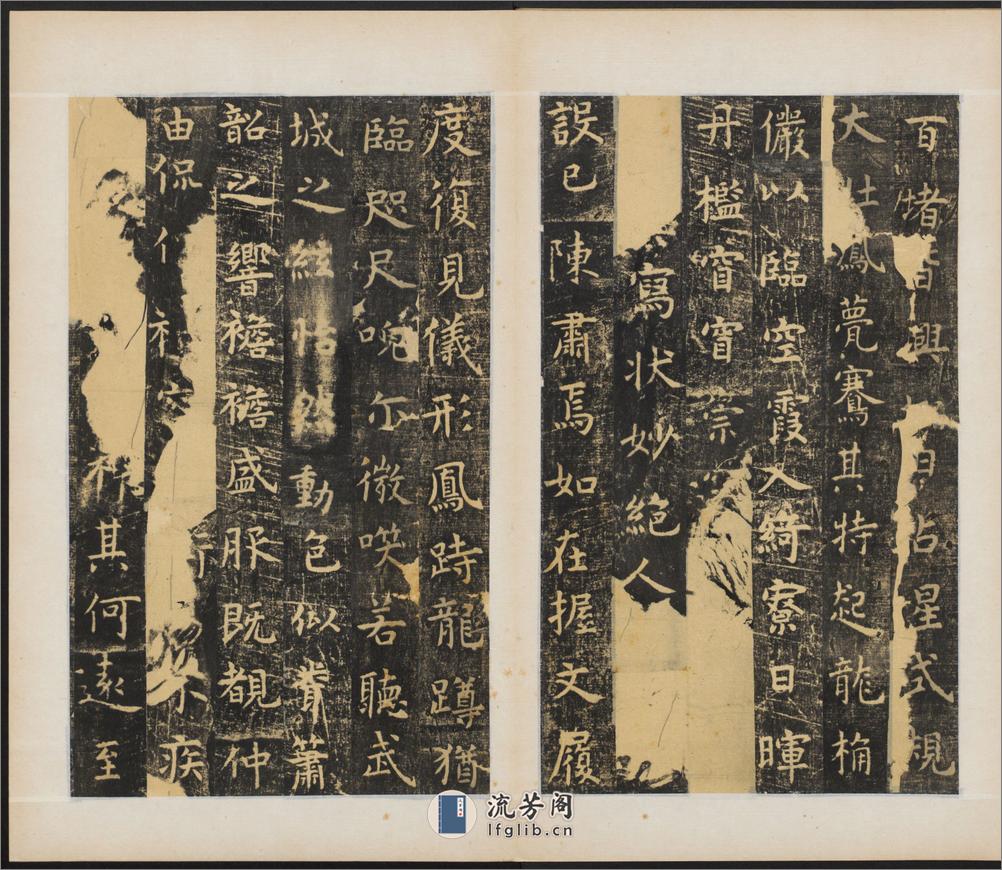 百堵皆興日占星式規
大壯鳳甍騫其特起龍桷
儼以臨空霞入綺寮日暉
丹檻窅窅崇
寫狀妙絕人
設已陳肅焉如在握文履
度復見儀形鳳跱龍蹲猶
臨咫尺睕尒微咲若聽武
城之絃怡然動色似聞簫
韶之響襜襜盛服既覩仲
由侃侃禮容不疾
神其何遠至
流芳阁
lfglib.cn